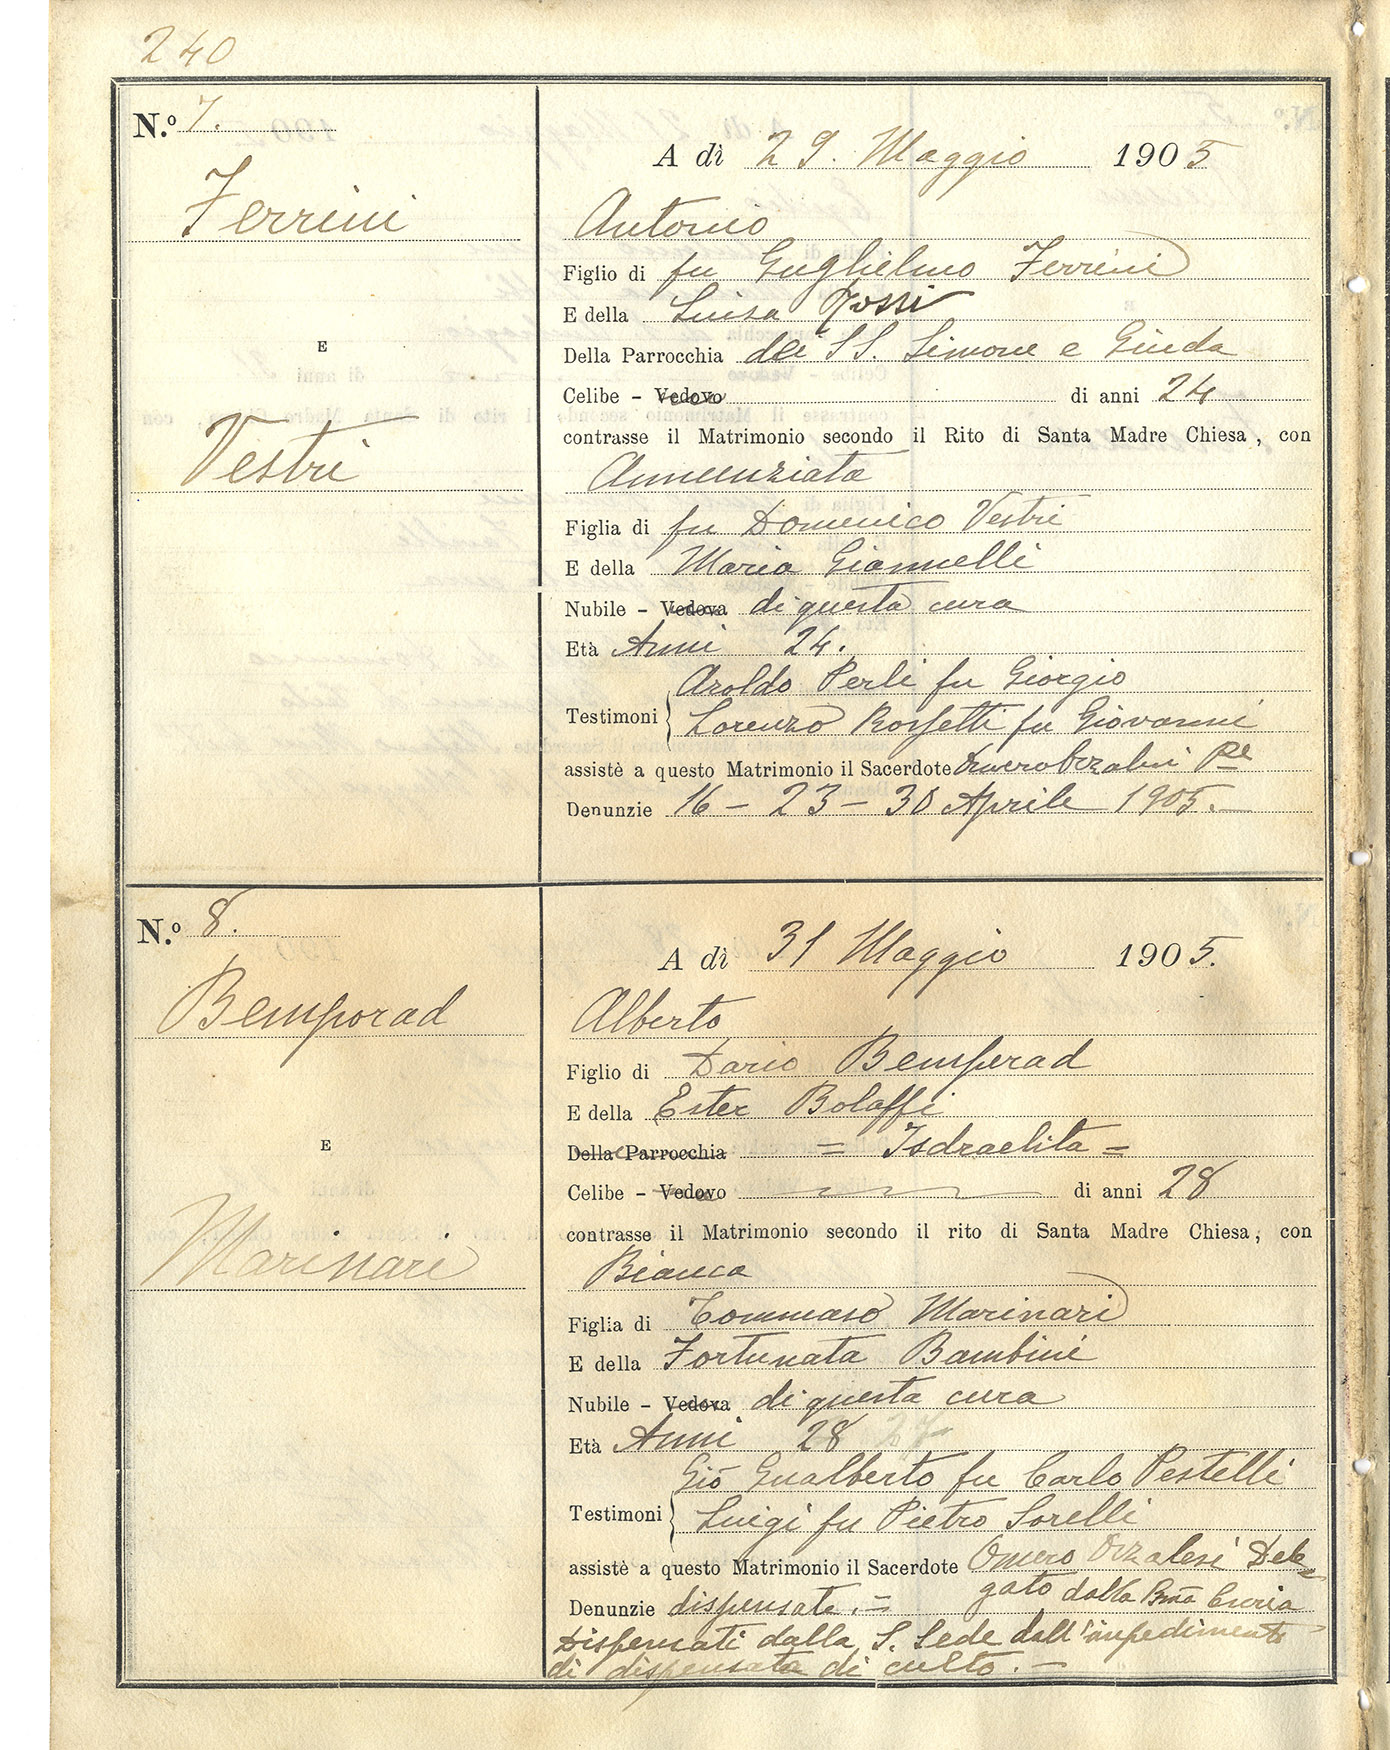 240
N.º 7.
Ferrini
E
Vestri
A dì 29. Maggio 1905
Antonio
Figlio di fu Guglielmo Ferrini
E della Luisa Rossi
Della Parrocchia dei SS. Simone e Giuda
Celibe - Vedovo di anni 24
contrasse il Matrimonio secondo il Rito di Santa Madre Chiesa, con
Annunziata
Figlia di fu Domenico Vestri
E della Maria Giannelli
Nubile - Vedova di questa cura
Età Anni 24.
Aroldo Perli fu Giorgio
Testimoni { Lorenzo fu Giovanni
assistè a questo Matrimonio il Sacerdote Omero Orzalesi
Denunzie 16 - 23 - 30 Aprile 1905. -
N.º 8.
Bemporad
E
Marinari
A dì 31 Maggio 1905.
Alberto
Figlio di Dario Bemporad
E della Ester Bolaffi
Della Parrocchia = Isdraelita =
Celibe - Vedovo di anni 28
contrasse il Matrimonio secondo il rito di Santa Madre Chiesa, con
Bianca
Figlia di Tommaso Marinari
E della Fortunata Bambini
Nubile - Vedova di questa cura
Età Anni 28 27
Gio Gualberto fu Carlo Pestelli
Testimoni { Luigi fu Pietro Sorelli
assistè a questo Matrimonio il Sacerdote Omero Orzalesi Dele=
gato dalla Curia
Denunzie dispensate. =
Dispensati dalla S. Sede dall'impedimento
di dispensata di culto. -